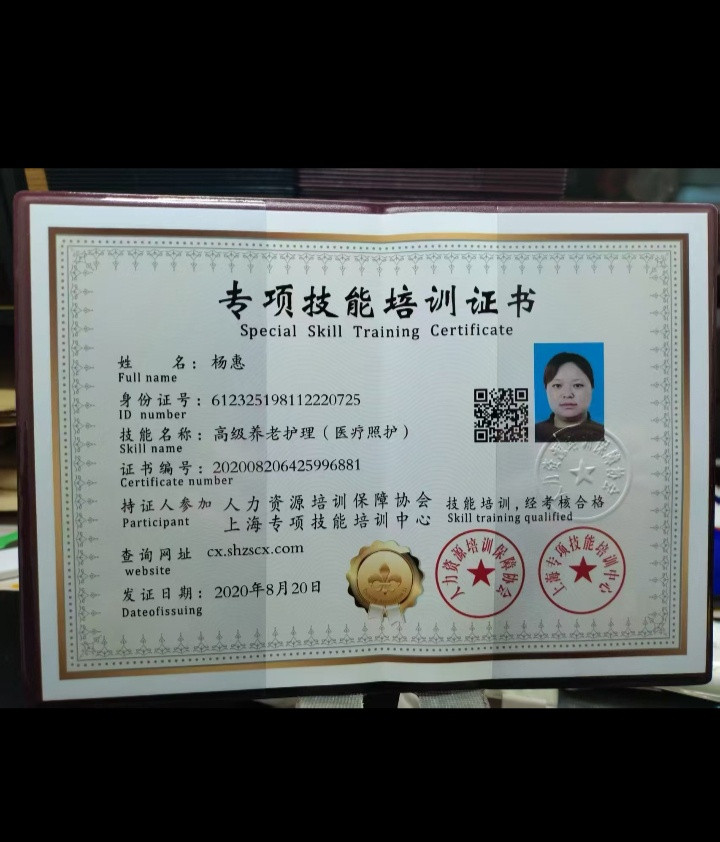 专项技能培训证书
Special Skill Training Certificate
姓 名：杨惠
Full name
身份证号：612325198112220725
ID number
技能名称：高级养老护理（医疗照护）
Skill name
证书编号：202008206425996881
Certificate number
持证人参加 人力资源培训保障协会 技能培训，经考核合格
Participant 上海专项技能培训中心 Skill training qualified
查询网址 cx.shzscx.com
website
发证日期：2020年8月20日
Dateofissuing
人力资源培训保障协会
上海专项技能培训中心